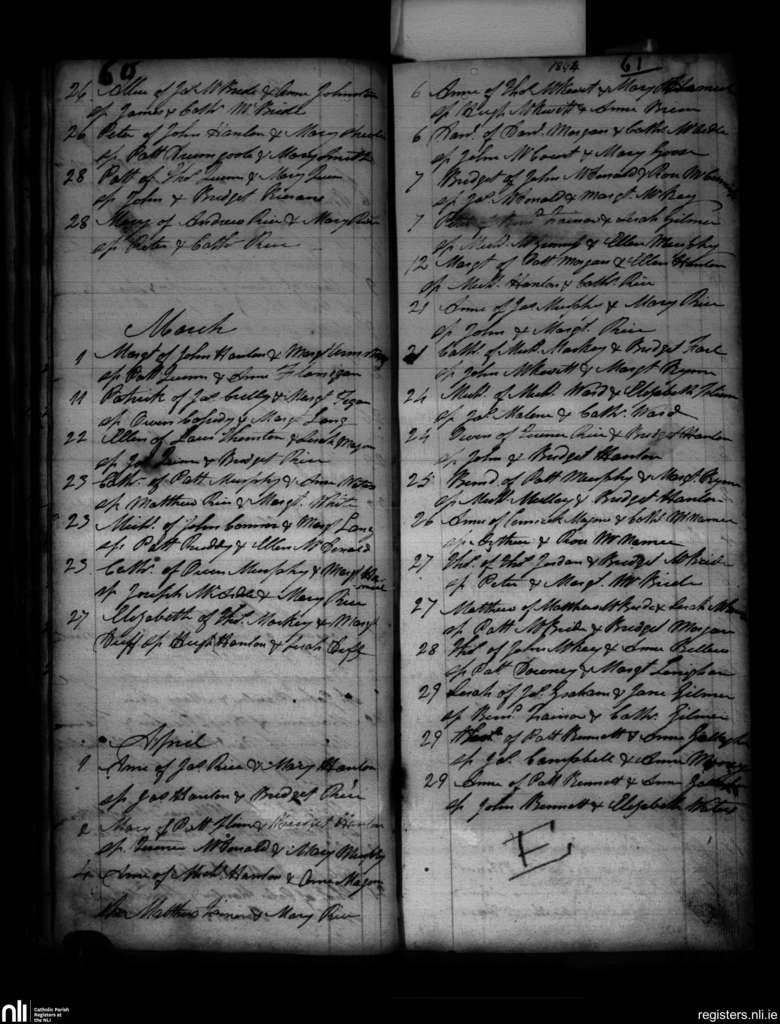 60
26 Allice of Jas McBride & Anne Johnston
sp James & Cath. McBride
26 Peter of John Hanlon & Mary
sp Patt Drumgoole & Mary Smith
28 Patt of Thos Quinn & Mary Quin
sp John & Bridget
28 Mary of Andrew Rice & Mary Rice
sp Peter & Cath. Rice
March
9 Margt of John Hanlon & Margt Armstrong
sp Patt Quinn & Anne Flanigan
11 Patrick of Jas Cully & Margt Fegan
sp Owen & Margt Lang
22 Ellen of & Sarah Magee
sp Jas & Bridget Rice
23 Cath. of Patt Murphy & Anne Waters
sp Matthew Rice & Margt White
23 Mich. of John Connor & Margt Lang
sp Patt Ruddy & Ellen McDonald
23 Cath. of Owen Murphy & Margt
sp Joseph McArdle & Mary Rice
27 Elizabeth of Thos. Mackey & Margt
Duff sp Hugh Hanlon & Sarah Duff
April
1 Anne of Jas Rice & Mary Hanlon
sp Jas Hanlon & Bridget Rice
2 Mary of Patt & Bridget Hanlon
sp McDonald & Mary Murphy
4 Anne of Mich. Hanlon & Anne Magee
sp Matthew & Mary Rice
1844 61
6 Anne of Thos McKevitt & Mary
sp Hugh McKevitt & Anne
6 Danl. of Danl. Morgan & Cath. McArdle
sp John McCourt & Mary
7 Bridget of John McDonald & Rose
sp Jas. McDonald & Margt. McKey
7 Trainor & Sarah Gilmer
sp Mich. & Ellen Murphy
12 Margt of Patt Morgan & Ellen Hanlon
sp Mich. Hanlon & Cath. Rice
21 Anne of Jas Murphy & Mary Rice
sp John & Margt. Rice
21 Cath. of Mich. Mackey & Bridget
sp John McKevitt & Margt Byrne
24 Mich. of Mich. Ward & Elizabeth
sp Jas. Malone & Cath. Ward
24 Owen of Rice & Bridget Hanlon
sp John & Bridget Hanlon
25 Bernd of Patt Murphy & Margt. Byrne
sp Mich. & Bridget Hanlon
26 Anne of & Cath. McNamee
sp Arthur & Rose McNamee
27 Thos. of Thos Jordan & Bridget McBride
sp Peter & Margt. McBride
27 Matthew of Matthew McBride & Sarah
sp Patt McBride & Bridget Morgan
28 Thos. of John McKey & Anne Bellew
sp Patt Downey & Margt
29 Sarah of Jas. Graham & Jane Gilmer
sp Bernd Trainor & Cath. Gilmer
29 of Patt Bennett & Anne Gallagher
sp Jas. Campbell & Anne
29 Anne of Patt Bennett & Anne Gallagher
sp John Bennett & Elizabeth Waters
E
nli Catholic Parish
Registers at
the NLI
registers.nli.ie